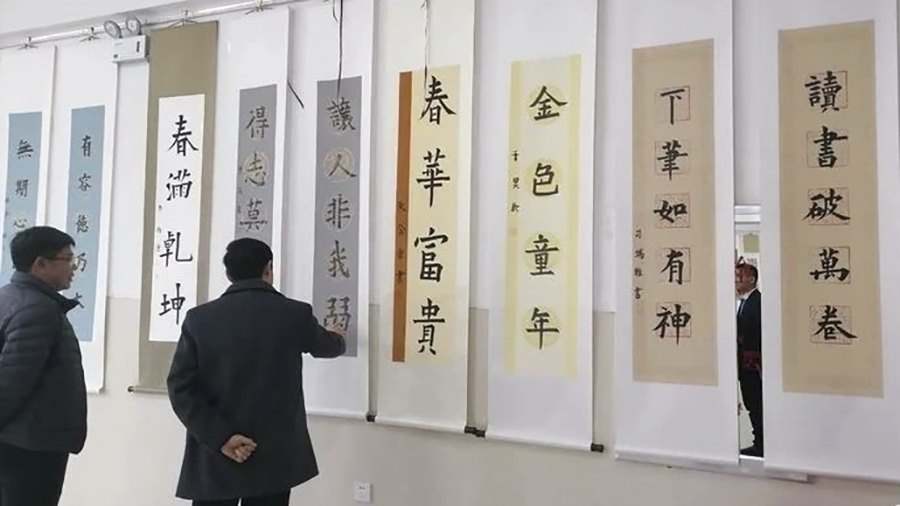 讀書破萬卷
下筆如有神
金色童年
春華富貴
讓人非我弱
得志莫
春滿乹坤
有容徳乃大
無期心